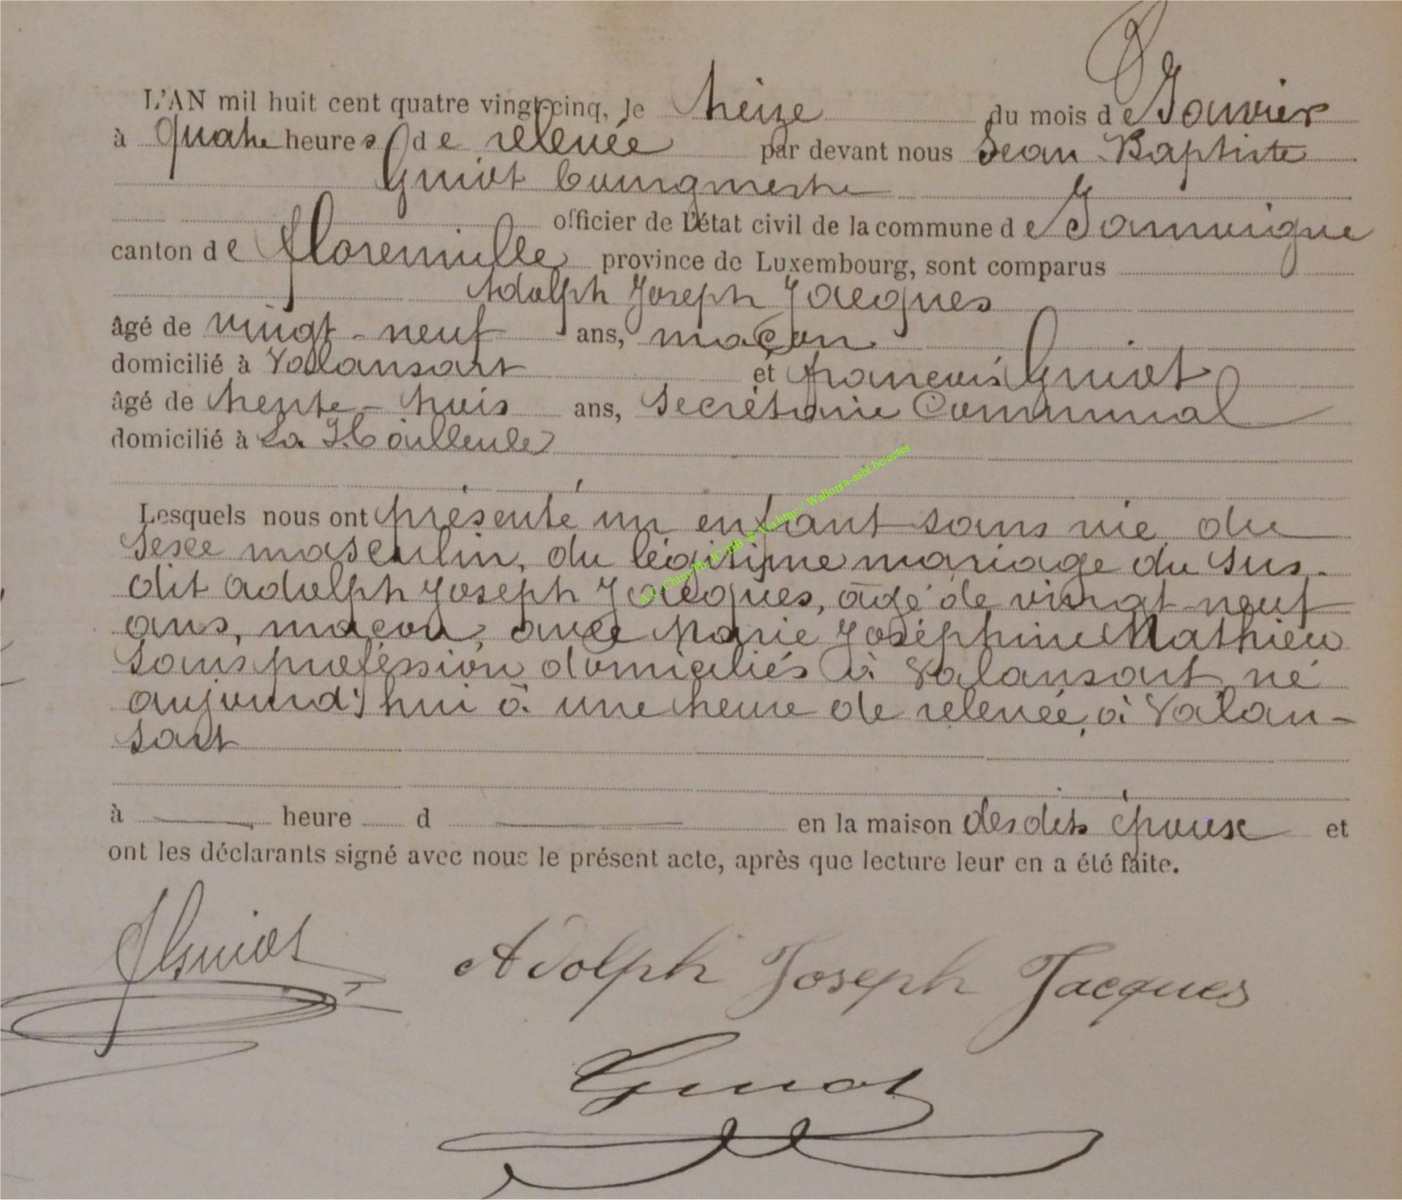 L'AN mil huit cent quatre vingt cinq, le treize du mois de Janvier
à quatre heures de relevée par devant nous Jean Baptiste
Guiot bourgmestre
officier de l'état civil de la commune de Jamoigne
canton de Florenville province de Luxembourg, sont comparus
Adolph Joseph Jacques
âgé de vingt-neuf ans, maçon
domicilié à Vallansart et françois Guiot
âgé de trente-trois ans, Secrétaire Communal
domicilié à La
Lesquels nous ont présenté un enfant sans vie du
sexe masculin, du légitime mariage du sus-
dit Adolph Joseph Jacques, âgé de vingt-neuf
ans, maçon, avec Marie Joséphine Mathieu
sans profession domiciliés à Valansart, né
aujourd'hui à une heure de relevée, à Valan-
sart
à heure d en la maison desdits époux et
ont les déclarants signé avec nous le présent acte, après que lecture leur en a été faite.
Guiot Adolph Joseph Jacques
Guiot